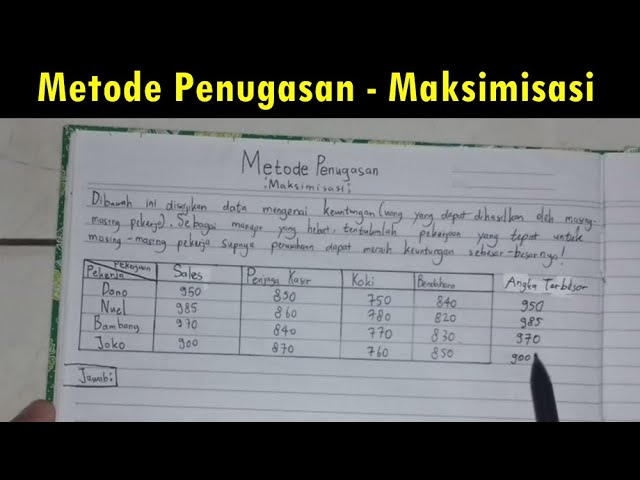 Metode Penugasan - Maksimisasi
Metode Penugasan
:Maksimisasi:
Dibawah ini disajikan data mengenai keuntungan (uang yang dapat dihasilkan oleh masing-
masing pekerja). Sebagai manajer yang hebat, tentukanlah pekerjaan yang tepat untuk
masing-masing pekerja supaya perusahaan dapat meraih keuntungan sebesar-besarnya!
Pekerjaan Pekerja Sales Penjaga Kasir Koki Bendahara Angka Terbesar
Dono 950 890 750 840 950
Nuel 985 860 780 820 985
Bambang 970 840 770 830 970
Joko 900 870 760 850 900
Jawab: